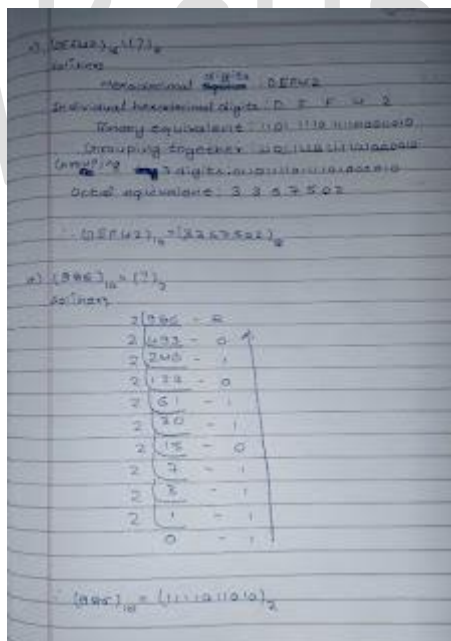 (DEF42)₁₆ = (?)₈
Solution
Hexadecimal digits : DEF42
Individual hexadecimal digits : D E F 4 2
Binary equivalent : 11011110111101000010
Grouping together : 11011110111101000010
Grouping 3 digits :
Octal equivalent : 3 3 6 7 5 0 2
∴ (DEF42)₁₆ = (3367502)₈
(986)₁₀ = (?)₂
Solution
2 986 - R
2 493 - 0
2 246 - 1
2 123 - 0
2 61 - 1
2 30 - 1
2 15 - 0
2 7 - 1
2 3 - 1
2 1 - 1
0 - 1
∴ (986)₁₀ = (1111011010)₂